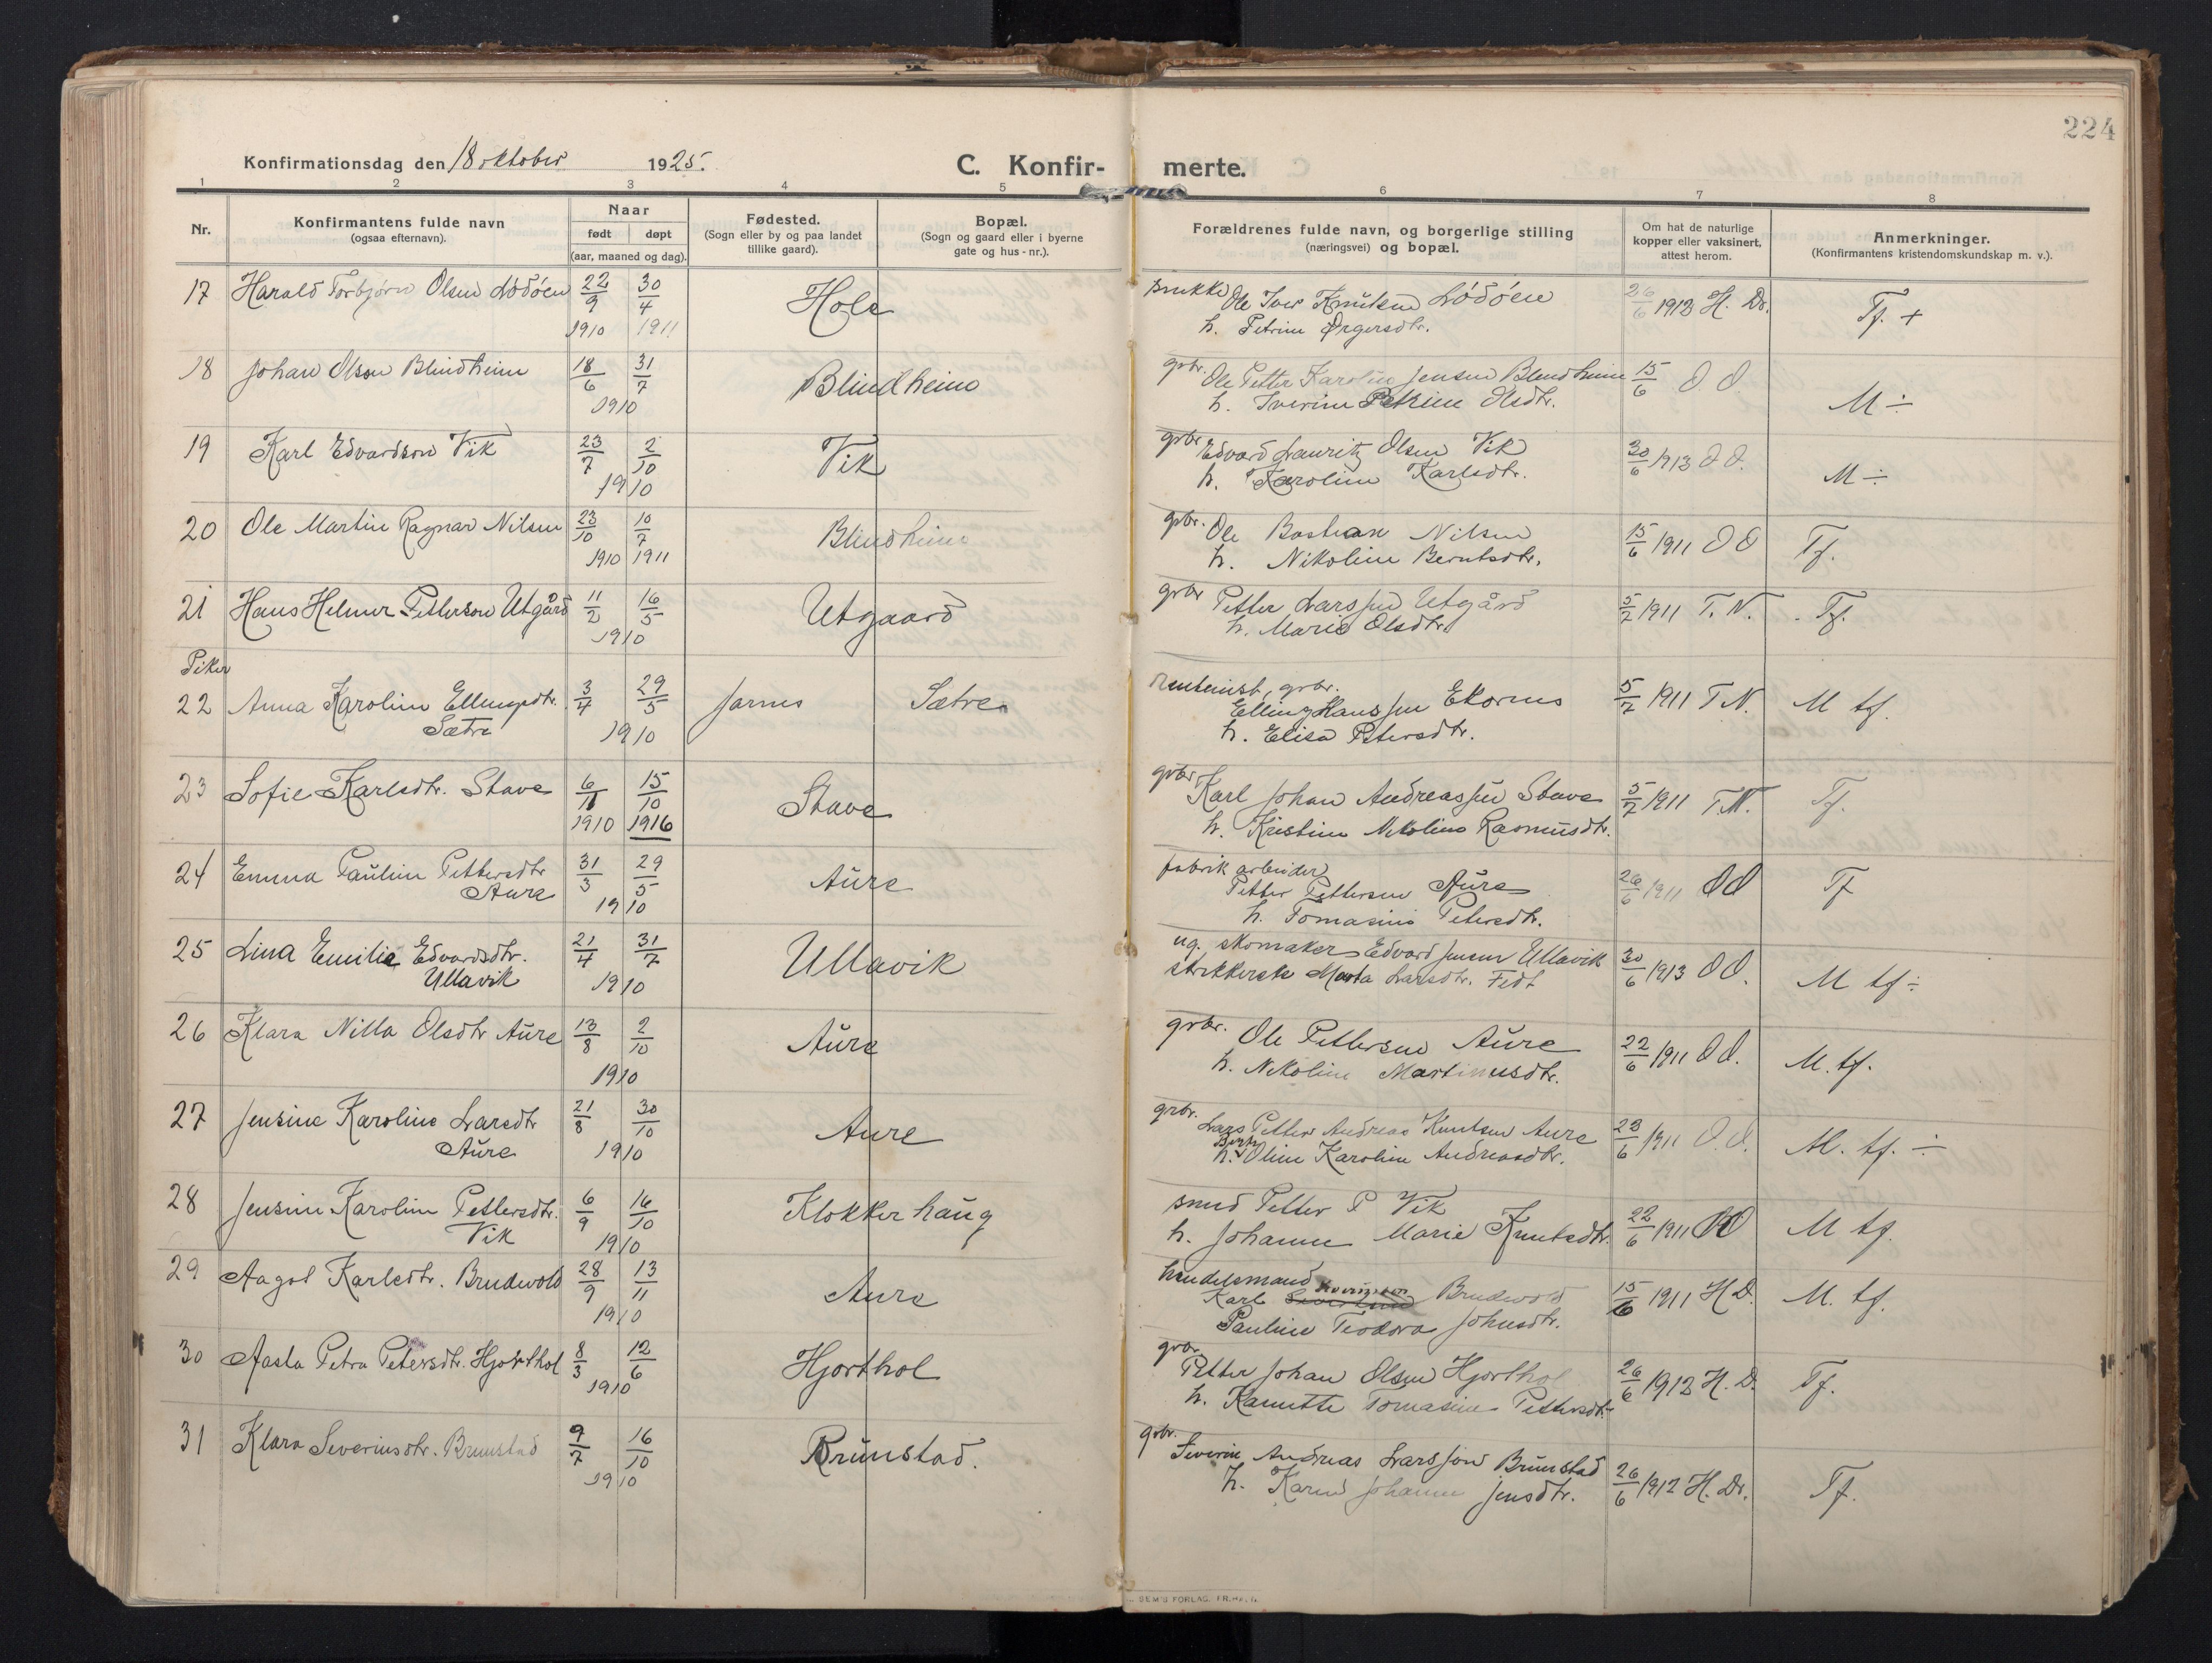 224
Konfirmationsdag den 18 oktober 1925.
C. Konfir- merte.
1 2 3 4 5 6 7 8
Nr.
Konfirmantens fulde navn
(ogsaa efternavn).
Naar
født døpt
(aar, maaned og dag).
Fødested.
(Sogn eller by og paa landet
tillike gaard).
Bopæl.
(Sogn og gaard eller i byerne
gate og hus-nr.).
Forældrenes fulde navn, og borgerlige stilling
(næringsvei) og bopæl.
Om hat de naturlige
kopper eller vaksinert,
attest herom.
Anmerkninger.
(Konfirmantens kristendomskundskap m. v.).
17 Harald Torbjørn Olsen Lödöen 22/9 1910 30/4 1911 Hole
Ole Iver Knutsen Lödöen
h. Petrine
26/6 1912 H. Dr. Tf. +
18 Johan Olsen Blindheim 18/6 31/7 1910 Blindheim
gbr. Ole Petter Karolius Jensen Blindheim
h. Iverine Petrine Olsdtr.
15/6 O O M ÷
19 Karl Edvardsen Vik 23/7 2/10 1910 Vik
gbr. Edvard Lauritz Olsen Vik
h. Karoline Karlsdtr.
30/6 1913 O O. M ÷
20 Ole Martin Ragnar Nilsen 23/10 1910 10/7 1911 Blindheim
gbr. Ole Bastian Nilsen
h. Nikoline Berntsdtr.
15/6 1911 O O Tf.
21 Hans Helmer Petterson Utgård 11/2 16/5 1910 Utgaard
gbr Petter Larssen Utgård
h. Marie Olsdtr.
5/7 1911 T. N. Tf.
Piker
22 Anna Karoline Ellingsdtr. Sætre 3/4 29/5 1910 Jarnes Sætre
rentenist, gbr.
Elling Hanssen Ekornes
h. Elisa Petersdtr.
5/7 1911 T.N. M tf.
23 Sofie Karlsdtr. Stave 6/11 1910 15/10 1916 Stave
gbr Karl Johan Andreassen Stave
h. Kristine Nikoline Rasmusdtr.
5/7 1911 T.N. Tf.
24 Emma Pauline Pettersdtr Aure 31/3 29/5 1910 Aure
fabrik arbeider
Petter Pettersen Aure
h. Tomasine Petersdtr.
26/6 1911 O O Tf
25 Lina Emilie Edvardsdtr. Ullavik 21/4 31/7 1910 Ullavik
ug. skomaker Edvard Jensen Ullavik
strikkerske Marta Larsdtr. Fedt
30/6 1913 O O. M tf ÷
26 Klara Nilla Olsdtr Aure 13/8 2/10 1910 Aure
gbr. Ole Pettersen Aure
h. Nikoline Martinusdtr.
22/6 1911 O O. M. tf.
27 Jensine Karoline Larsdtr Aure 21/8 30/10 1910 Aure
gbr. Lars Petter Andreas Knutsen Aure
h. Berte Oline Karoline Andreasdtr.
23/6 1911 O. O. M. tf. ÷
28 Jensine Karoline Pettersdtr. Vik 6/9 16/10 1910 Klokkerhaug
smed Petter P Vik
h. Johanne Marie Knutsdtr.
22/6 1911 O O M tf.
29 Aagot Karlsdtr. Brudevold 28/9 13/11 1910 Aure
handelsmand
Karl Brudevold
Pauline Teodora Johnsdtr.
15/6 1911 H D. M. tf.
30 Aasta Petra Petersdtr. Hjorthol 8/3 12/6 1910 Hjorthol
gbr
Petter Johan Olsen Hjorthol
h. Ranutte Tomasine Pettersdtr.
26/6 1912 H. D. Tf.
31 Klara Severinsdtr. Brunstad 9/7 16/10 1910 Brunstad.
gbr. Severin Andreas Larsson Brunstad
h. Karen Johanne Jensdtr.
26/6 1912 H. Dr. Tf.
SEM'S FORLAG, FR.HALD.